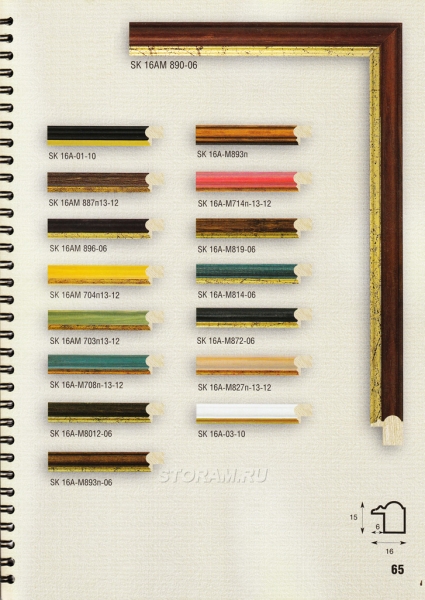 SK 16AM 890-06
SK 16A-01-10
SK 16A-M893п
SK 16AM 887п13-12
SK 16A-M714п-13-12
SK 16AM 896-06
SK 16A-M819-06
SK 16AM 704п13-12
SK 16A-M814-06
SK 16AM 703п13-12
SK 16A-M872-06
SK 16A-M708п-13-12
SK 16A-M827п-13-12
SK 16A-M8012-06
SK 16A-03-10
SK 16A-M893п-06
STORAM.RU
15
6
16
65